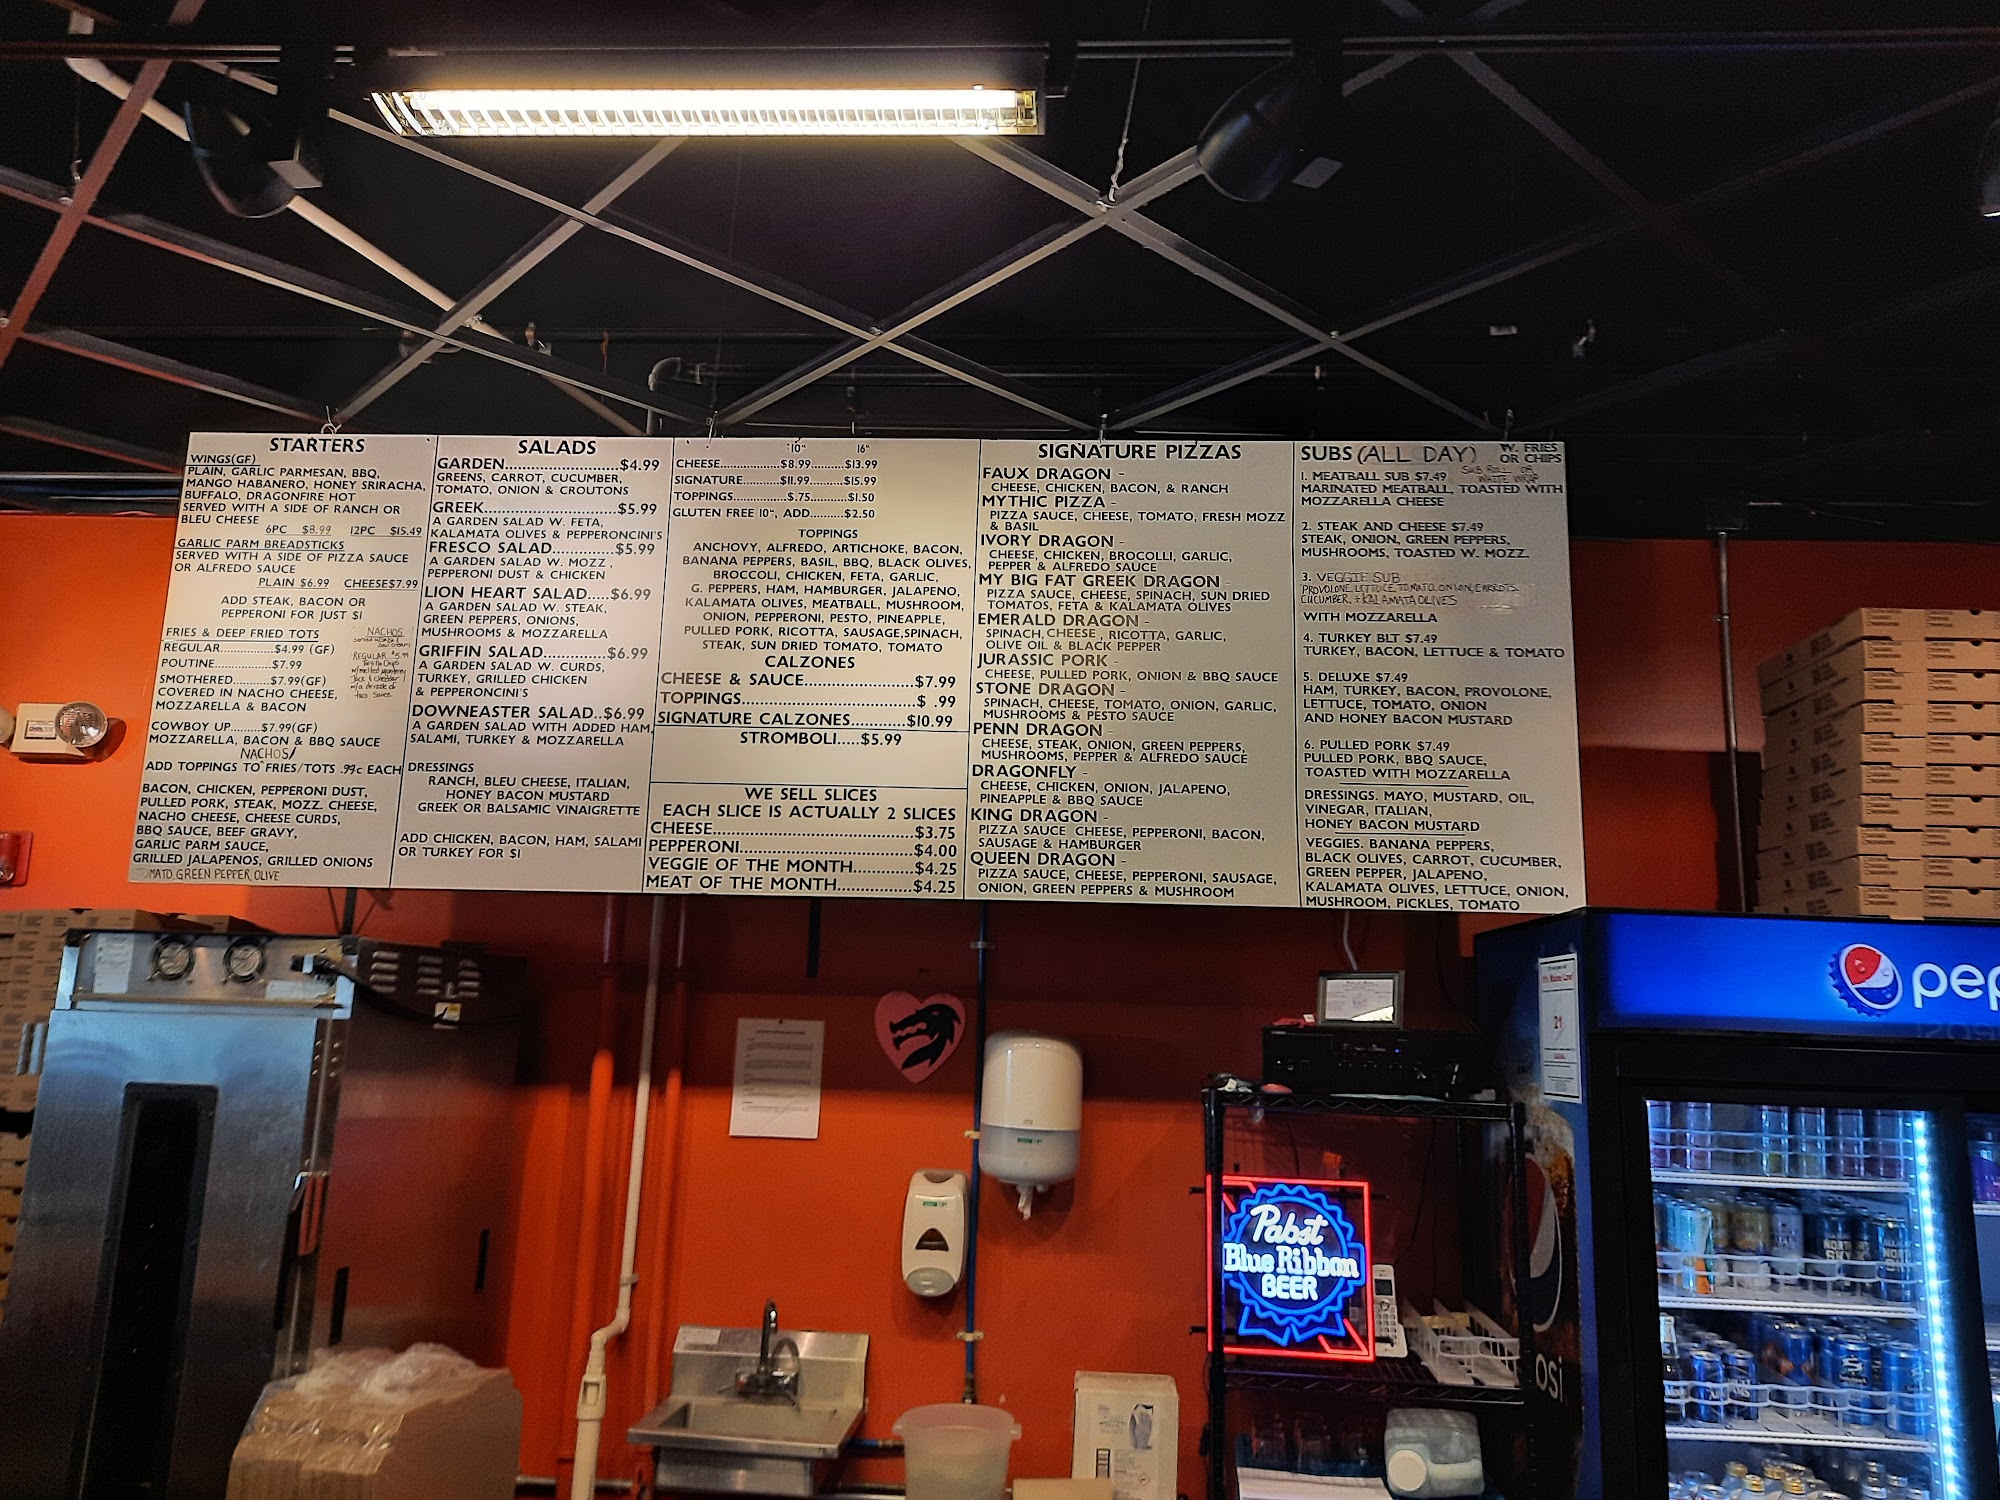 STARTERS
WINGS(GF)
PLAIN, GARLIC PARMESAN, BBQ,
MANGO HABANERO, HONEY SRIRACHA,
BUFFALO, DRAGONFIRE HOT
SERVED WITH A SIDE OF RANCH OR
BLEU CHEESE
6PC $8.99 12PC $15.49
GARLIC PARM BREADSTICKS
SERVED WITH A SIDE OF PIZZA SAUCE
OR ALFREDO SAUCE
PLAIN $6.99 CHEESE$7.99
ADD STEAK, BACON OR
PEPPERONI FOR JUST $1
FRIES & DEEP FRIED TOTS
REGULAR..............$4.99 (GF)
POUTINE..............$7.99
SMOTHERED.........$7.99(GF)
COVERED IN NACHO CHEESE,
MOZZARELLA & BACON
NACHOS
REGULAR $5.99
Tortilla Chips
COWBOY UP........$7.99(GF)
MOZZARELLA, BACON & BBQ SAUCE
NACHOS/
ADD TOPPINGS TO^FRIES/TOTS .99c EACH
BACON, CHICKEN, PEPPERONI DUST,
PULLED PORK, STEAK, MOZZ. CHEESE,
NACHO CHEESE, CHEESE CURDS,
BBQ SAUCE, BEEF GRAVY,
GARLIC PARM SAUCE,
GRILLED JALAPENOS, GRILLED ONIONS
TOMATO, GREEN PEPPER, OLIVE
SALADS
GARDEN....................$4.99
GREENS, CARROT, CUCUMBER,
TOMATO, ONION & CROUTONS
GREEK.......................$5.99
A GARDEN SALAD W. FETA,
KALAMATA OLIVES & PEPPERONCINI'S
FRESCO SALAD..............$5.99
A GARDEN SALAD W. MOZZ ,
PEPPERONI DUST & CHICKEN
LION HEART SALAD.....$6.99
A GARDEN SALAD W. STEAK,
GREEN PEPPERS, ONIONS,
MUSHROOMS & MOZZARELLA
GRIFFIN SALAD..............$6.99
A GARDEN SALAD W. CURDS,
TURKEY, GRILLED CHICKEN
& PEPPERONCINI'S
DOWNEASTER SALAD..$6.99
A GARDEN SALAD WITH ADDED HAM,
SALAMI, TURKEY & MOZZARELLA
DRESSINGS
RANCH, BLEU CHEESE, ITALIAN,
HONEY BACON MUSTARD
GREEK OR BALSAMIC VINAIGRETTE
ADD CHICKEN, BACON, HAM, SALAMI
OR TURKEY FOR $1
10" 16"
CHEESE...............$8.99..........$13.99
SIGNATURE...........$11.99.........$15.99
TOPPINGS..............$.75............$1.50
GLUTEN FREE 10", ADD..........$2.50
TOPPINGS
ANCHOVY, ALFREDO, ARTICHOKE, BACON,
BANANA PEPPERS, BASIL, BBQ, BLACK OLIVES,
BROCCOLI, CHICKEN, FETA, GARLIC,
G. PEPPERS, HAM, HAMBURGER, JALAPENO,
KALAMATA OLIVES, MEATBALL, MUSHROOM,
ONION, PEPPERONI, PESTO, PINEAPPLE,
PULLED PORK, RICOTTA, SAUSAGE,SPINACH,
STEAK, SUN DRIED TOMATO, TOMATO
CALZONES
CHEESE & SAUCE.......................$7.99
TOPPINGS.............................$ .99
SIGNATURE CALZONES...........$10.99
STROMBOLI.....$5.99
WE SELL SLICES
EACH SLICE IS ACTUALLY 2 SLICES
CHEESE.................................$3.75
PEPPERONI............................$4.00
VEGGIE OF THE MONTH..........$4.25
MEAT OF THE MONTH.............$4.25
SIGNATURE PIZZAS
FAUX DRAGON -
CHEESE, CHICKEN, BACON, & RANCH
MYTHIC PIZZA -
PIZZA SAUCE, CHEESE, TOMATO, FRESH MOZZ
& BASIL
IVORY DRAGON -
CHEESE, CHICKEN, BROCOLLI, GARLIC,
PEPPER & ALFREDO SAUCE
MY BIG FAT GREEK DRAGON -
PIZZA SAUCE, CHEESE, SPINACH, SUN DRIED
TOMATOS, FETA & KALAMATA OLIVES
EMERALD DRAGON -
SPINACH, CHEESE , RICOTTA, GARLIC,
OLIVE OIL & BLACK PEPPER
JURASSIC PORK -
CHEESE, PULLED PORK, ONION & BBQ SAUCE
STONE DRAGON -
SPINACH, CHEESE, TOMATO, ONION, GARLIC,
MUSHROOMS & PESTO SAUCE
PENN DRAGON -
CHEESE, STEAK, ONION, GREEN PEPPERS,
MUSHROOMS, PEPPER & ALFREDO SAUCE
DRAGONFLY -
CHEESE, CHICKEN, ONION, JALAPENO,
PINEAPPLE & BBQ SAUCE
KING DRAGON -
PIZZA SAUCE CHEESE, PEPPERONI, BACON,
SAUSAGE & HAMBURGER
QUEEN DRAGON -
PIZZA SAUCE, CHEESE, PEPPERONI, SAUSAGE,
ONION, GREEN PEPPERS & MUSHROOM
SUBS (ALL DAY) W. FRIES
OR CHIPS
1. MEATBALL SUB $7.49 SUB ROLL OR
WHITE WRAP
MARINATED MEATBALL, TOASTED WITH
MOZZARELLA CHEESE
2. STEAK AND CHEESE $7.49
STEAK, ONION, GREEN PEPPERS,
MUSHROOMS, TOASTED W. MOZZ.
3. VEGGIE SUB
PROVOLONE, LETTUCE, TOMATO, ONION, CARROTS,
CUCUMBER, + KALAMATA OLIVES
WITH MOZZARELLA
4. TURKEY BLT $7.49
TURKEY, BACON, LETTUCE & TOMATO
5. DELUXE $7.49
HAM, TURKEY, BACON, PROVOLONE,
LETTUCE, TOMATO, ONION
AND HONEY BACON MUSTARD
6. PULLED PORK $7.49
PULLED PORK, BBQ SAUCE,
TOASTED WITH MOZZARELLA
DRESSINGS. MAYO, MUSTARD, OIL,
VINEGAR, ITALIAN,
HONEY BACON MUSTARD
VEGGIES. BANANA PEPPERS,
BLACK OLIVES, CARROT, CUCUMBER,
GREEN PEPPER, JALAPENO,
KALAMATA OLIVES, LETTUCE, ONION,
MUSHROOM, PICKLES, TOMATO
pep
21
Pabst
Blue Ribbon
BEER